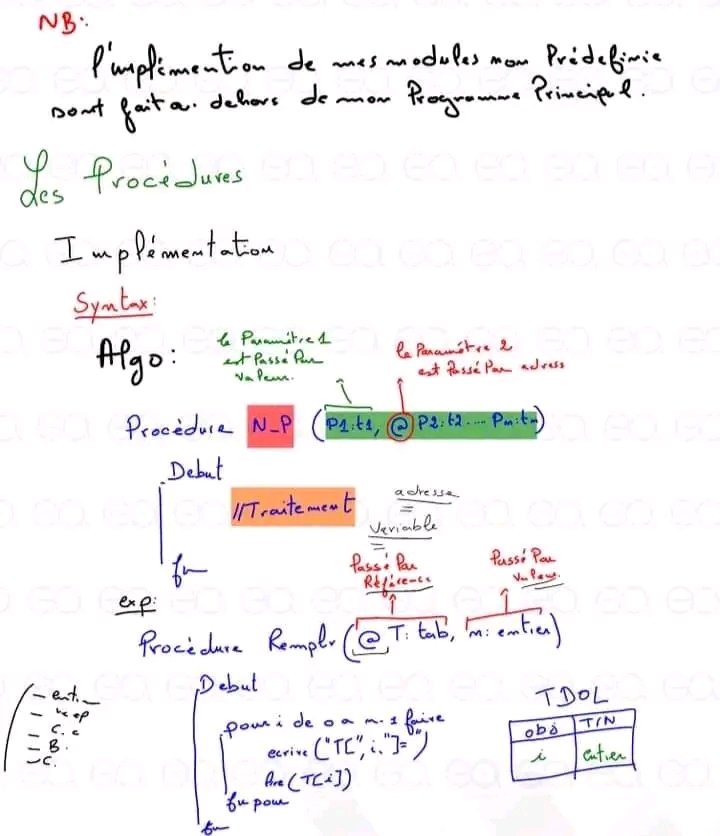 NB:
l'implémention de mes modules non Prédefinie
sont fait a dehors de mon Programme Principal.
Les Procédures
Implémentation
Syntax:
Algo:
le Paramètre 1
est Passé Par
valeur.
le Paramètre 2
est Passé Par adress
Procédure N_P (P1:t1, @ P2:t2.... Pn:tn)
Debut
//Traitement
fin
adresse
=
variable
=
exp:
Passé Par
Référence
Passé Par
valeur
Procédure Remplir (@ T: tab, n: entier)
Debut
pour i de 0 a n-1 faire
ecrire ("T[", i, "]=")
lire (T[i])
fin pour
fin
- C.c
- B.
- C.
TDOL
obj T/N
i entier